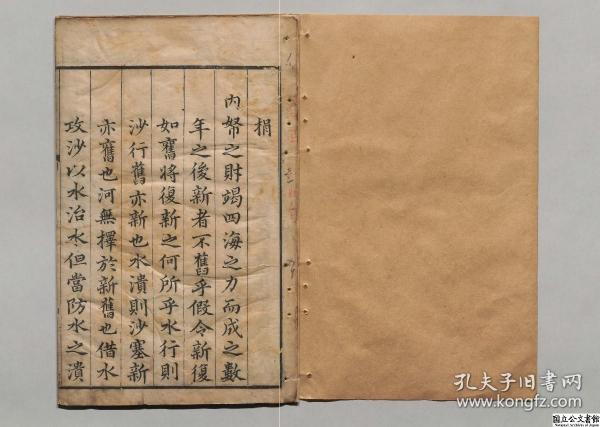 捐
內帑之財竭四海之力而成之數
年之後新者不舊乎假令新復
如舊將復新之何所乎水行則
沙行舊亦新也水潰則沙塞新
亦舊也河無擇於新舊也借水
攻沙以水治水但當防水之潰
孔夫子旧书网
www.kongfz.com
国立公文書館
National Archives of Japan